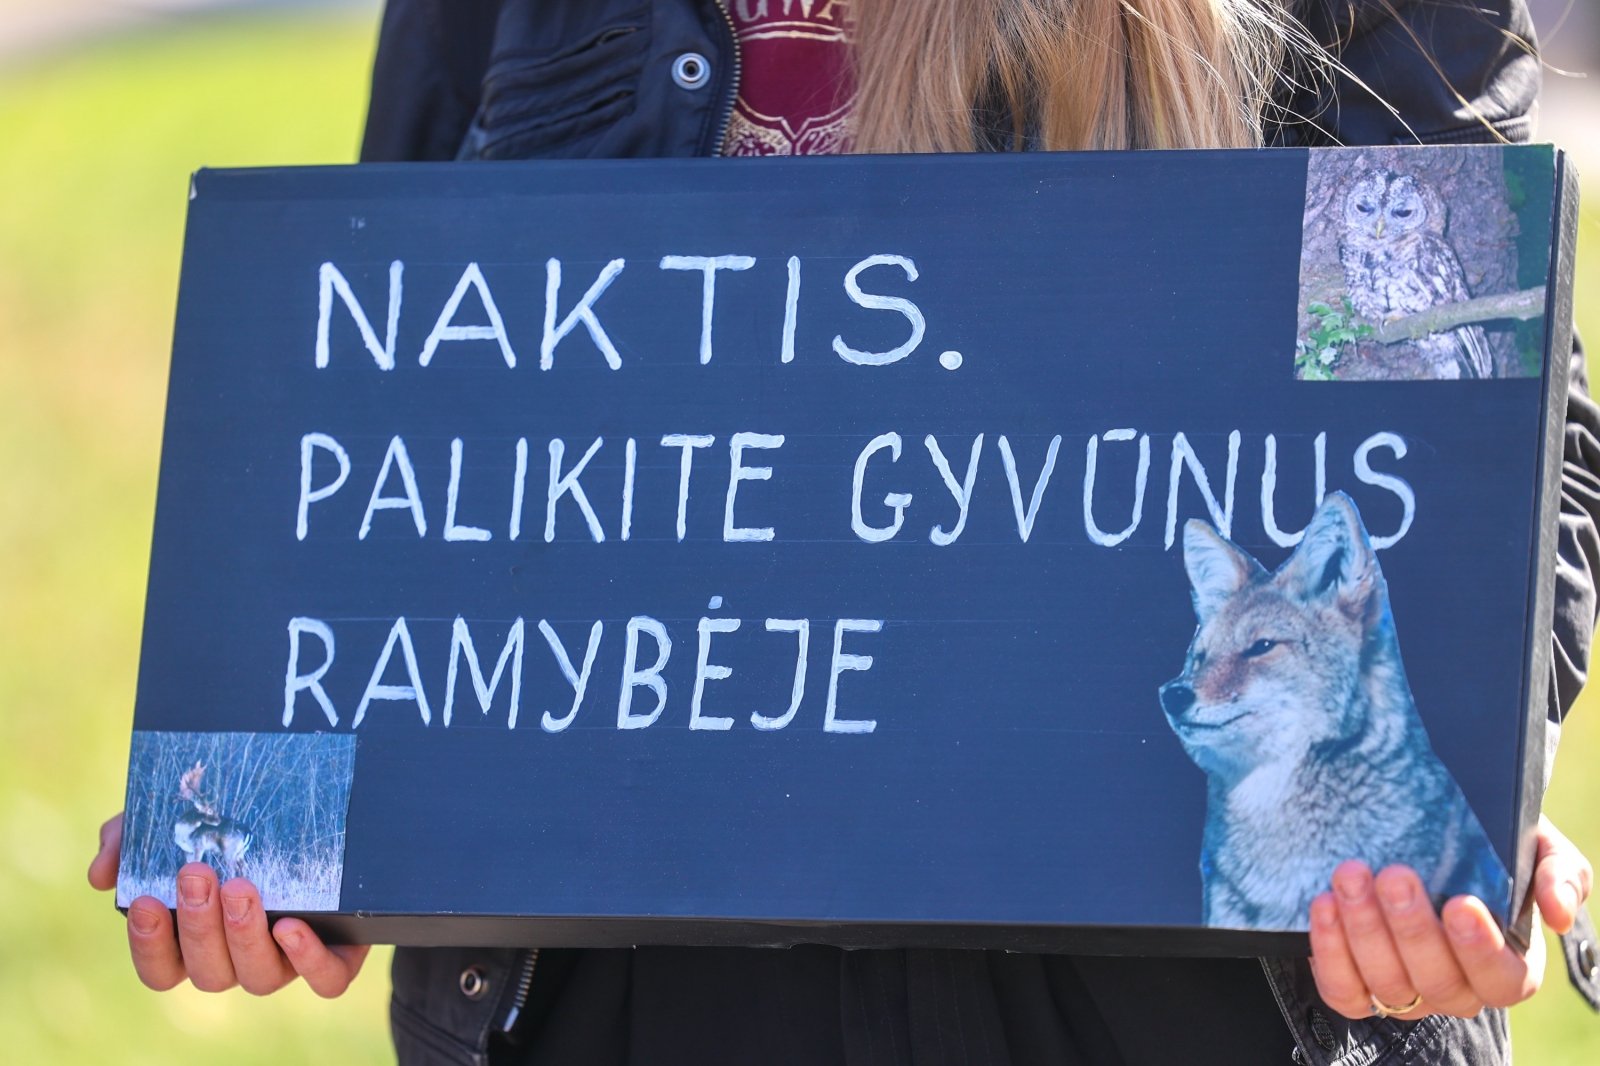 NAKTIS.
PALIKITE GYVŪNUS
RAMYBĖJE